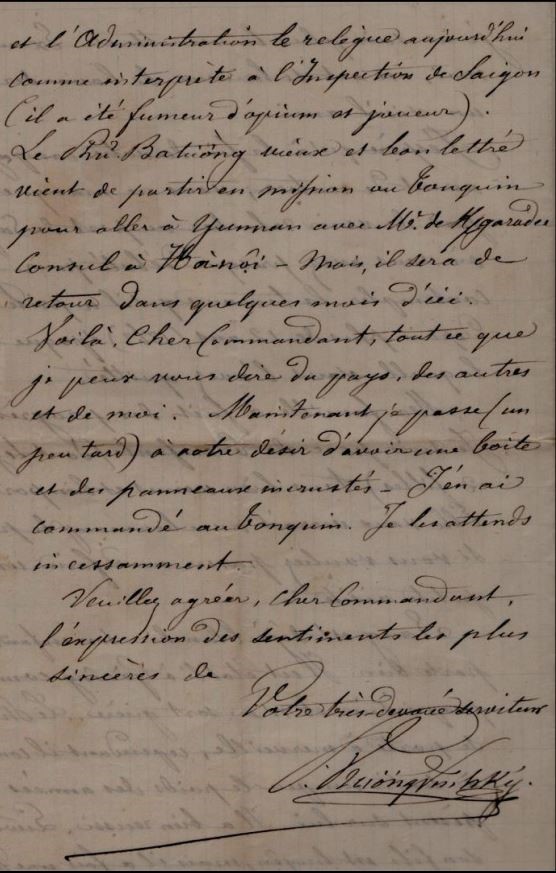 et l'Administration le relègue aujourd'hui
comme interprète à l'Inspection de Saigon
(il a été fumeur d'opium et joueur).
Le Phủ Batường vieux et bon lettré
vient de partir en mission au Tonquin
pour aller à Yunnan avec Mr. de Kgaradec
Consul à Hà-nôi - Mais, il sera de
retour dans quelques mois d'ici.
Voilà, Cher Commandant, tout ce que
je peux vous dire du pays, des autres
et de moi. Maintenant je passe (un
peu tard) à votre désir d'avoir une boite
et des panneaux incrustés - J'en ai
commandé au Tonquin. Je les attends
incessamment
Veuillez agréer, Cher Commandant,
l'expression des sentiments les plus
sincères de
Votre très dévoué serviteur
P. Trương Vĩnh Ký.